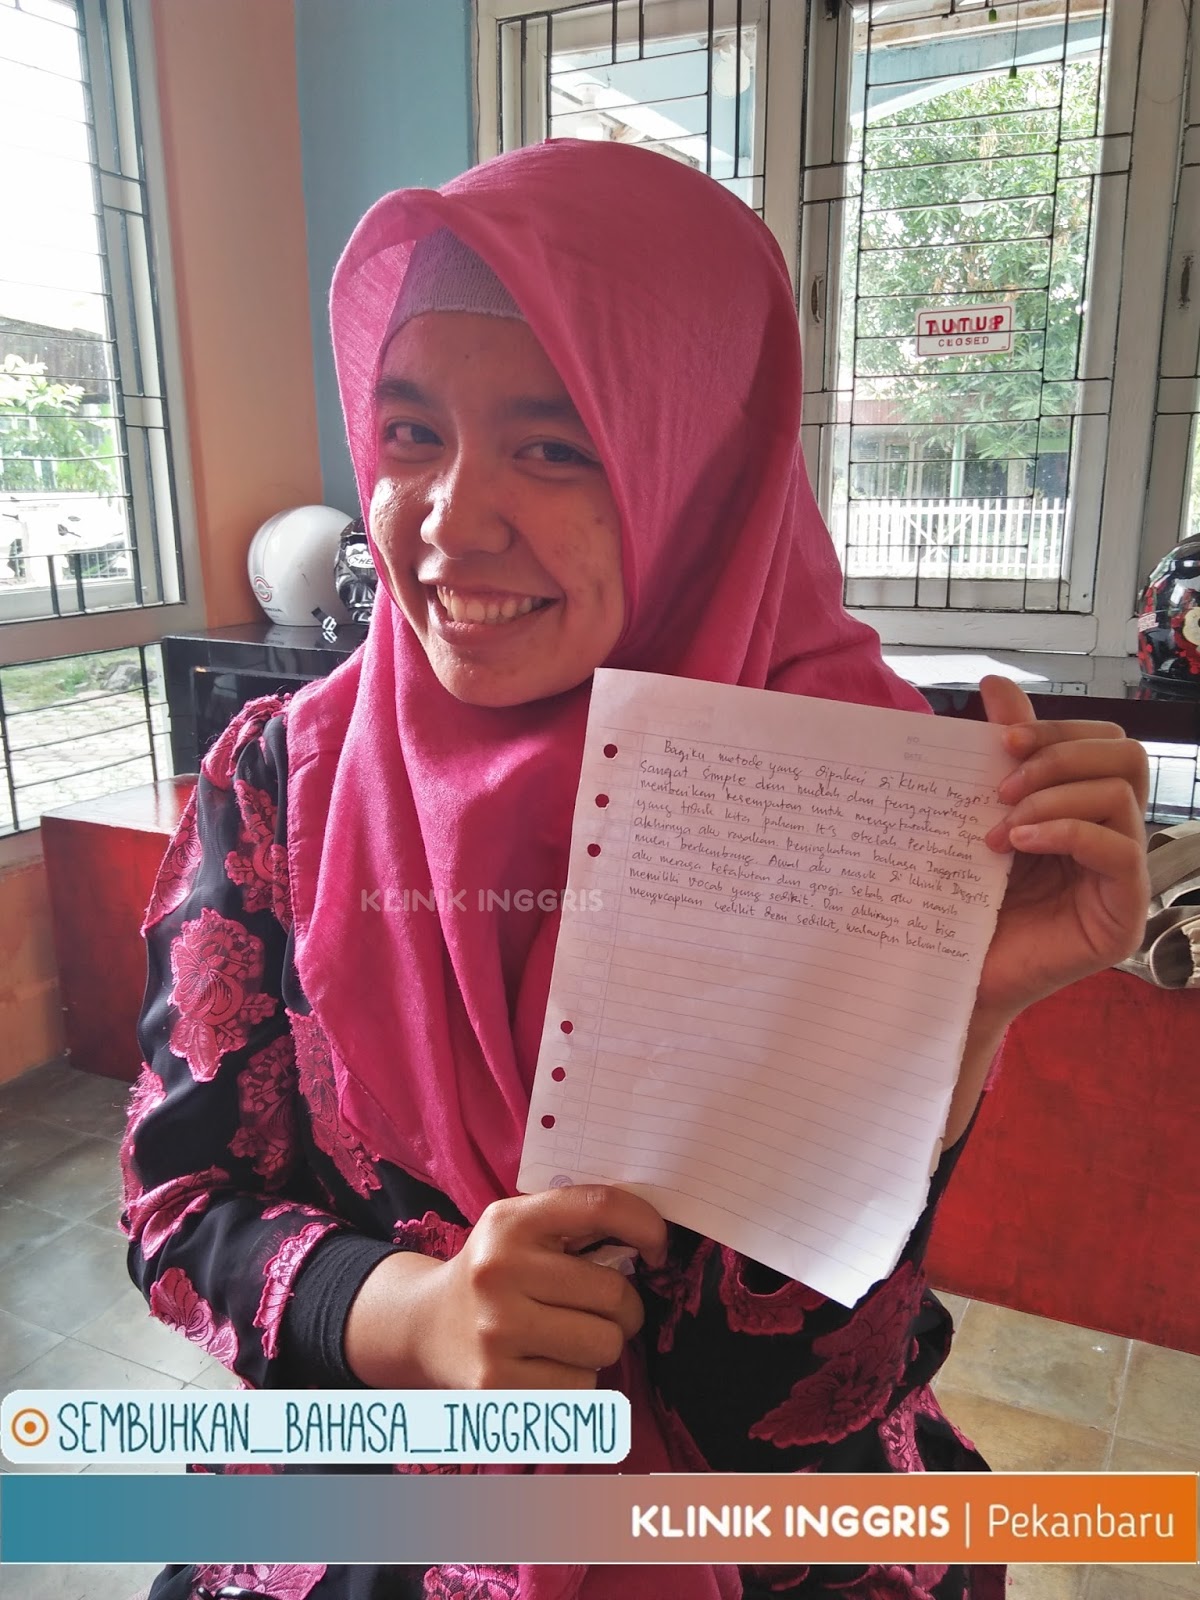 TUTUP
CLOSED
NO
DATE
Bagiku metode yang dipakai di Klinik Inggris
sangat simple dan mudah dan pengajarnya
memberikan kesempatan untuk mengutarakan apa
yang tidak kita paham. It's
akhirnya aku rasakan. Peningkatan bahasa Inggrisku
mulai berkembang. Awal aku masuk di Klinik Inggris,
aku merasa ketakutan dan grogi sebab, aku masih
memiliki vocab yang sedikit. Dan akhirnya aku bisa
mengucapkan sedikit demi sedikit, walaupun belum lancar.
KLINIK INGGRIS
SEMBUHKAN_BAHASA_INGGRISMU
KLINIK INGGRIS | Pekanbaru